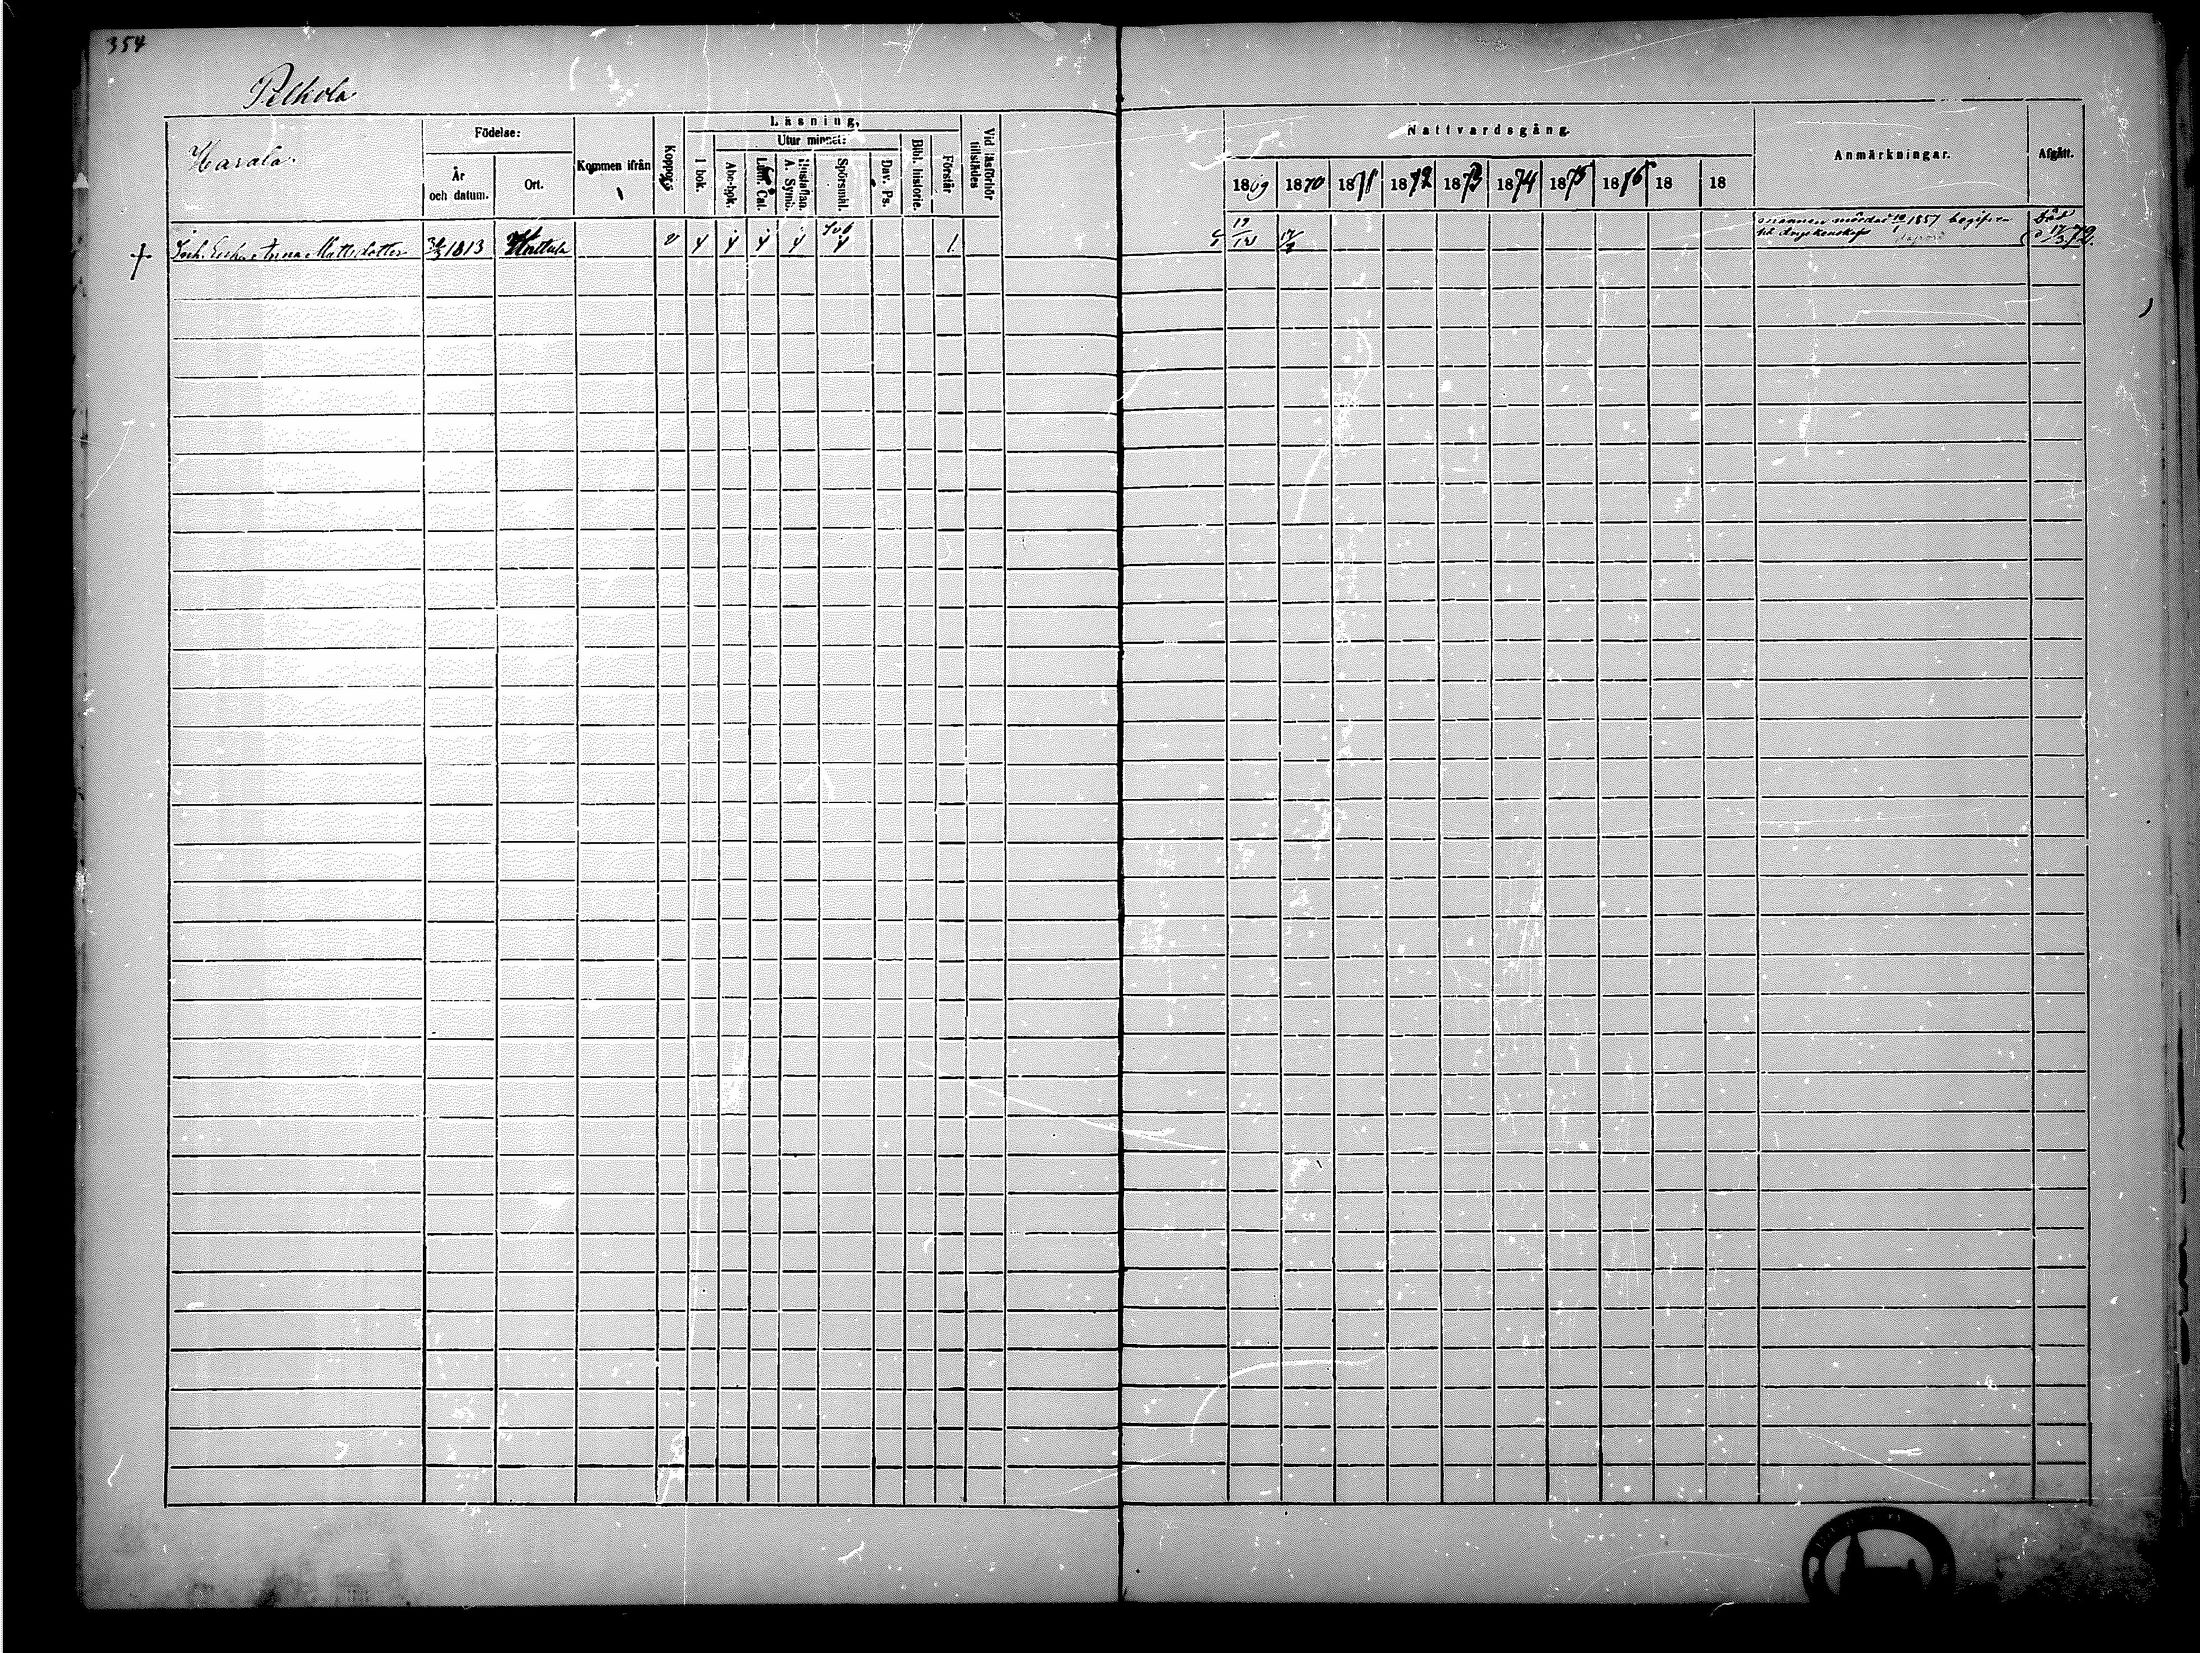 354
Pelkola
Havala.
Födelse:
År
och datum.
Ort.
Kommen ifrån
Koppor
Läsning,
I bok.
Utur minnet:
Abc-bok.
Luth. Cat.
Hustaflan. A. Symb.
Spörsmål.
Dav. Ps.
Bibl. historie.
Förstår
Vid läsförhör tillstädes
Nattvardsgång.
1869 1870 1871 1872 1873 1874 1875 1876 18 18
Anmärkningar.
Afgått.
Inh. Enka Anna Mattsdotter 1813 Hattula v
1.
19/12 17/7
mannen mördat 1857 begifven
till dryckenskap
Död
d 17/3 72.